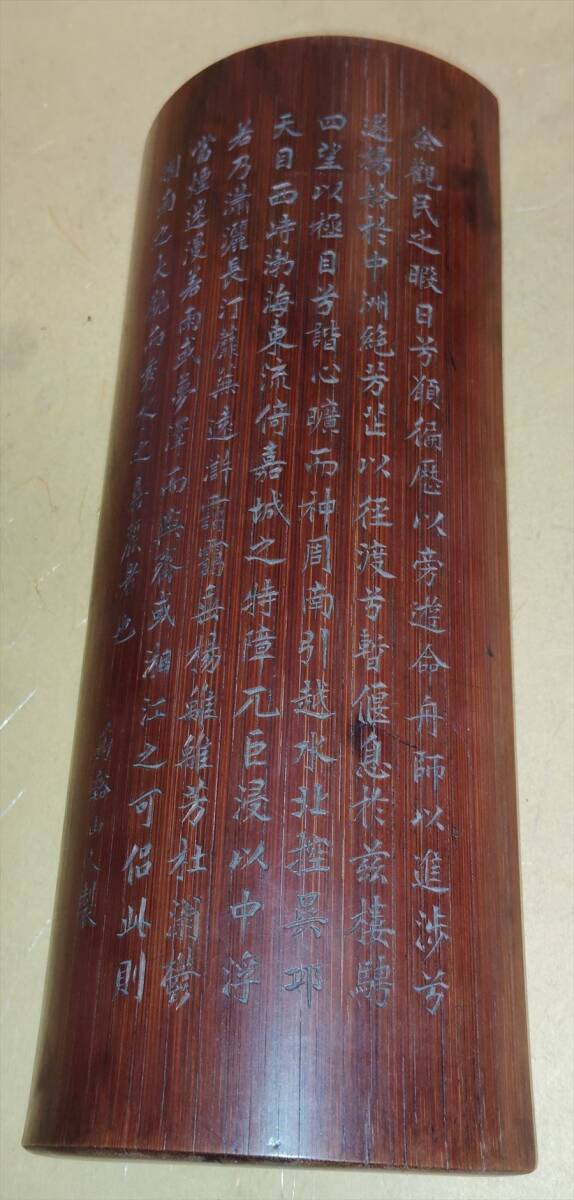 余觀民之暇日兮願徧歷以旁遊命舟師以進涉兮
遂揚舲於中洲絶芳芷以徑渡兮暫偃息於兹樓騁
四望以極目兮諧心曠而神周南引越水北控吳邛
天目西峙渤海東流倚嘉城之特障兀巨浸以中浮
若乃瀟灑長汀蘼蕪遠澨霏霧垂楊離離芳杜滃鬱
當連迷漫若雨或夢澤而與齊或湘江之可侶此則
之大觀而之喜
也
山人製